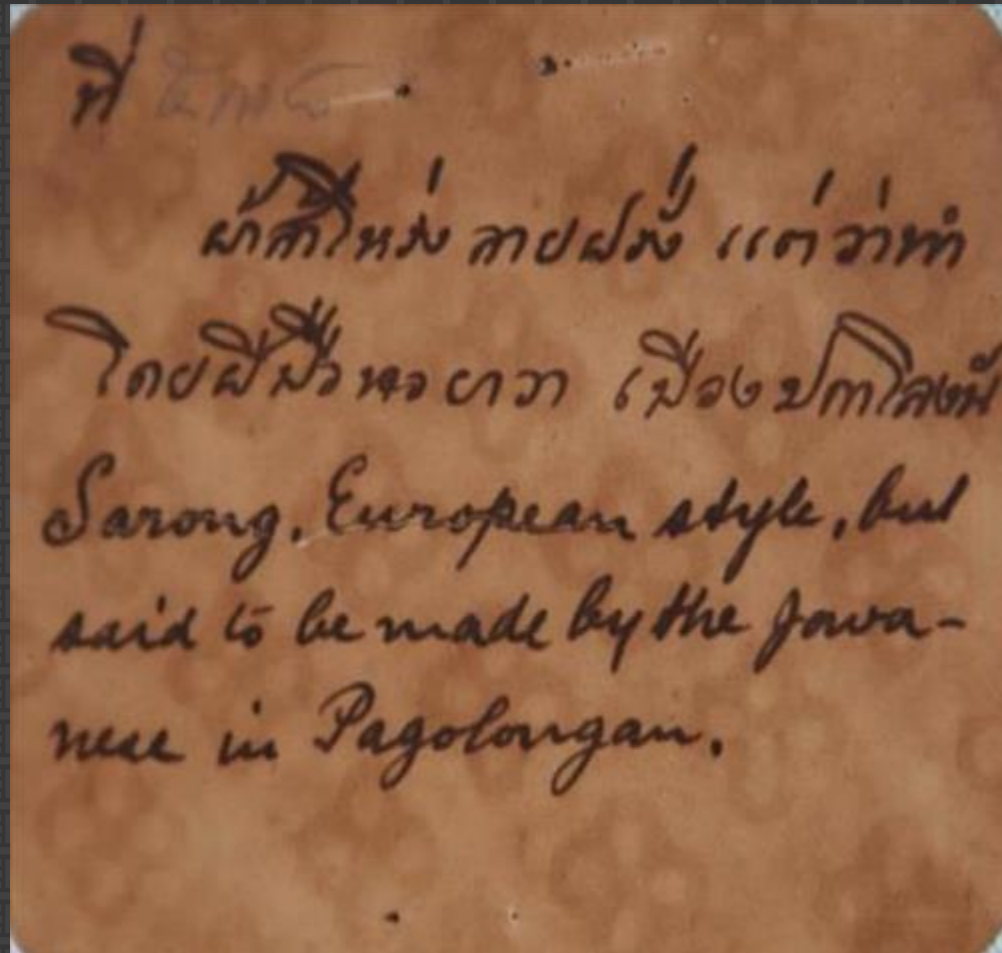 ที่
ผ้าโสร่ง ลายฝรั่ง แต่ว่าทำ
โดยฝีมือ ชวา เมืองปกาโลงัน
Sarong, European style, but
said to be made by the Jawa-
nese in Pagolongan.